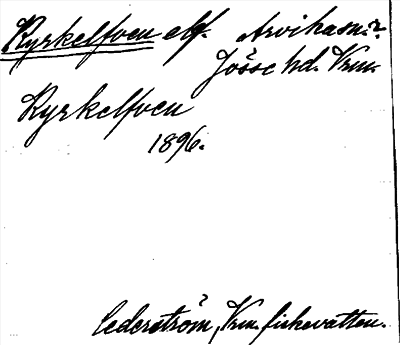 Kyrkelfven elf. Arvikasn.?
Jösse hd. Vrm.
Kyrkelfven
1896.
Cederström, Vrm. fiskevatten.